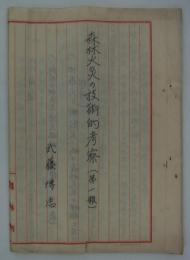 森林火災の技術的考察（第一報）
武藤博忠